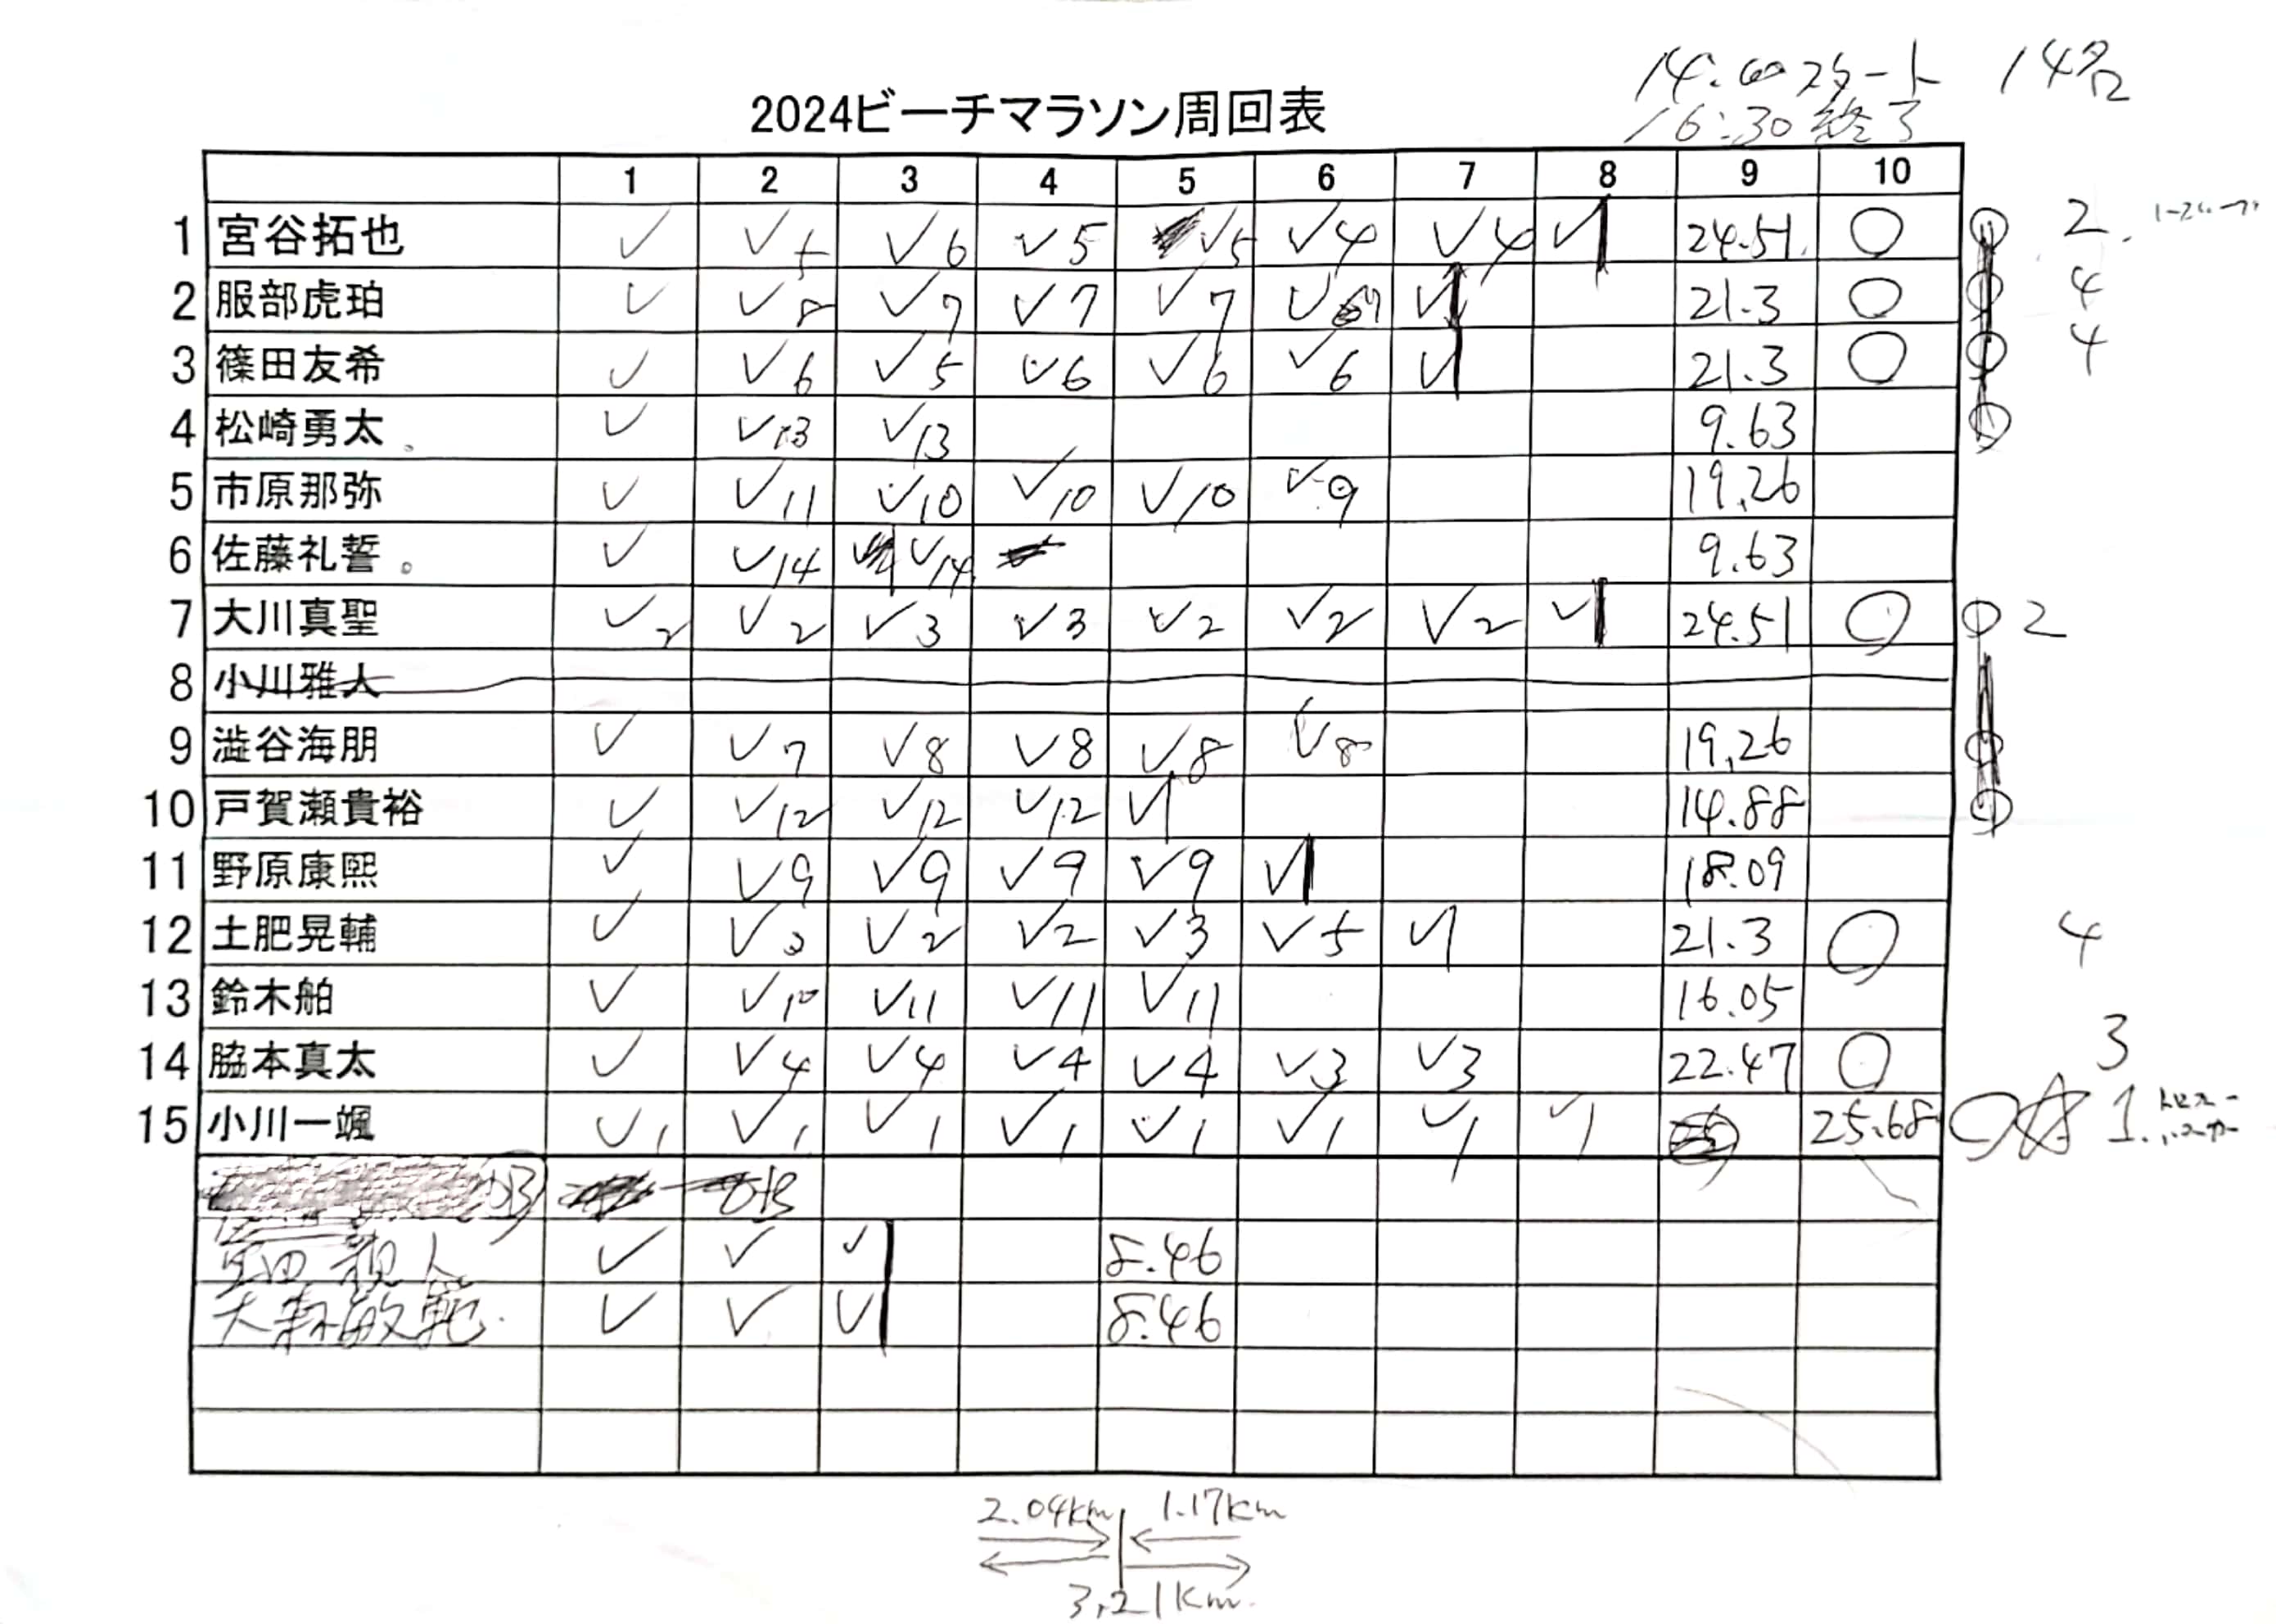 14:00スタート 14名
16:30終了
2024ビーチマラソン周回表
1 2 3 4 5 6 7 8 9 10
1 宮谷拓也 ✓ ✓5 ✓6 ✓5 ✓5 ✓4 ✓4 ✓ 24.51 ○ 2.
2 服部虎珀 ✓ ✓8 ✓7 ✓7 ✓7 ✓7 ✓ 21.3 ○ 4
3 篠田友希 ✓ ✓6 ✓5 ✓6 ✓6 ✓6 ✓ 21.3 ○ 4
4 松崎勇太 。 ✓ ✓13 ✓13 9.63
5 市原那弥 ✓ ✓11 ✓10 ✓10 ✓10 ✓9 19.26
6 佐藤礼誓 。 ✓ ✓14 ✓14 9.63
7 大川真聖 ✓2 ✓2 ✓3 ✓3 ✓2 ✓2 ✓2 ✓ 24.51 ○ ○ 2
8 小川雅人
9 澁谷海朋 ✓ ✓7 ✓8 ✓8 ✓8 ✓8 19.26
10 戸賀瀬貴裕 ✓ ✓12 ✓12 ✓12 ✓ 14.88
11 野原康熙 ✓ ✓9 ✓9 ✓9 ✓9 ✓ 18.09
12 土肥晃輔 ✓ ✓3 ✓2 ✓2 ✓3 ✓5 ✓ 21.3 ○ 4
13 鈴木舶 ✓ ✓10 ✓11 ✓11 ✓11 16.05
14 脇本真太 ✓ ✓4 ✓4 ✓4 ✓4 ✓3 ✓3 22.47 ○ 3
15 小川一颯 ✓1 ✓1 ✓1 ✓1 ✓1 ✓1 ✓1 ✓1 25.68 ○☆ 1.
✓ ✓ ✓ 8.46
大森敏範 ✓ ✓ ✓ 8.46
2.04km 1.17km
3.21km